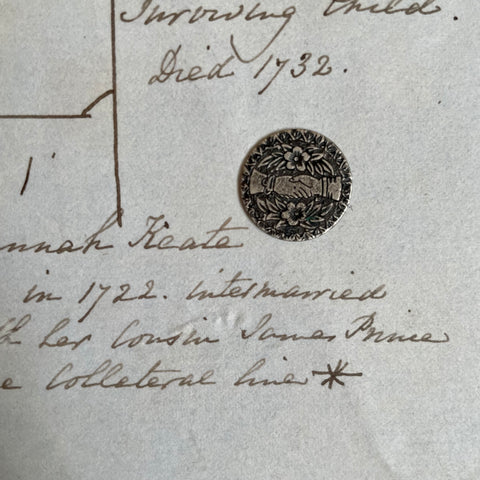 surviving Child.
Died 1732.
1
nnah Keate
in 1722. intermarried
th her Cousin James Prince
e Collateral line *